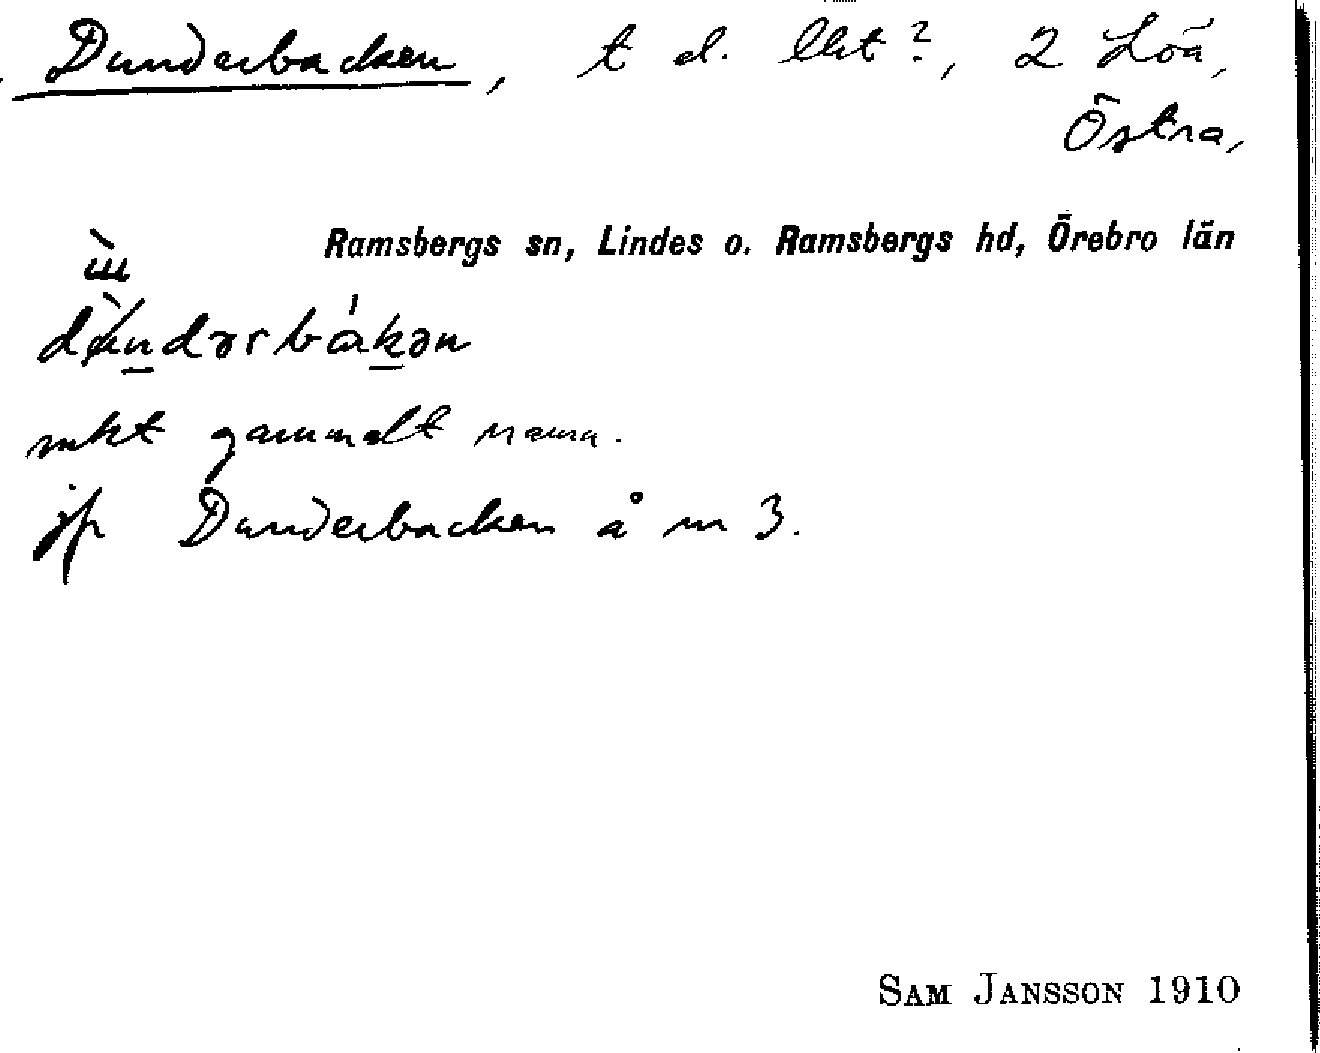 Dunderbacken, t d. lht?, 2 Löa,
Östra,
Ramsbergs sn, Lindes o. Ramsbergs hd, Örebro län
dùndərbákən
mkt gammalt namn.
jfr Dunderbacken å m 3.
SAM JANSSON 1910